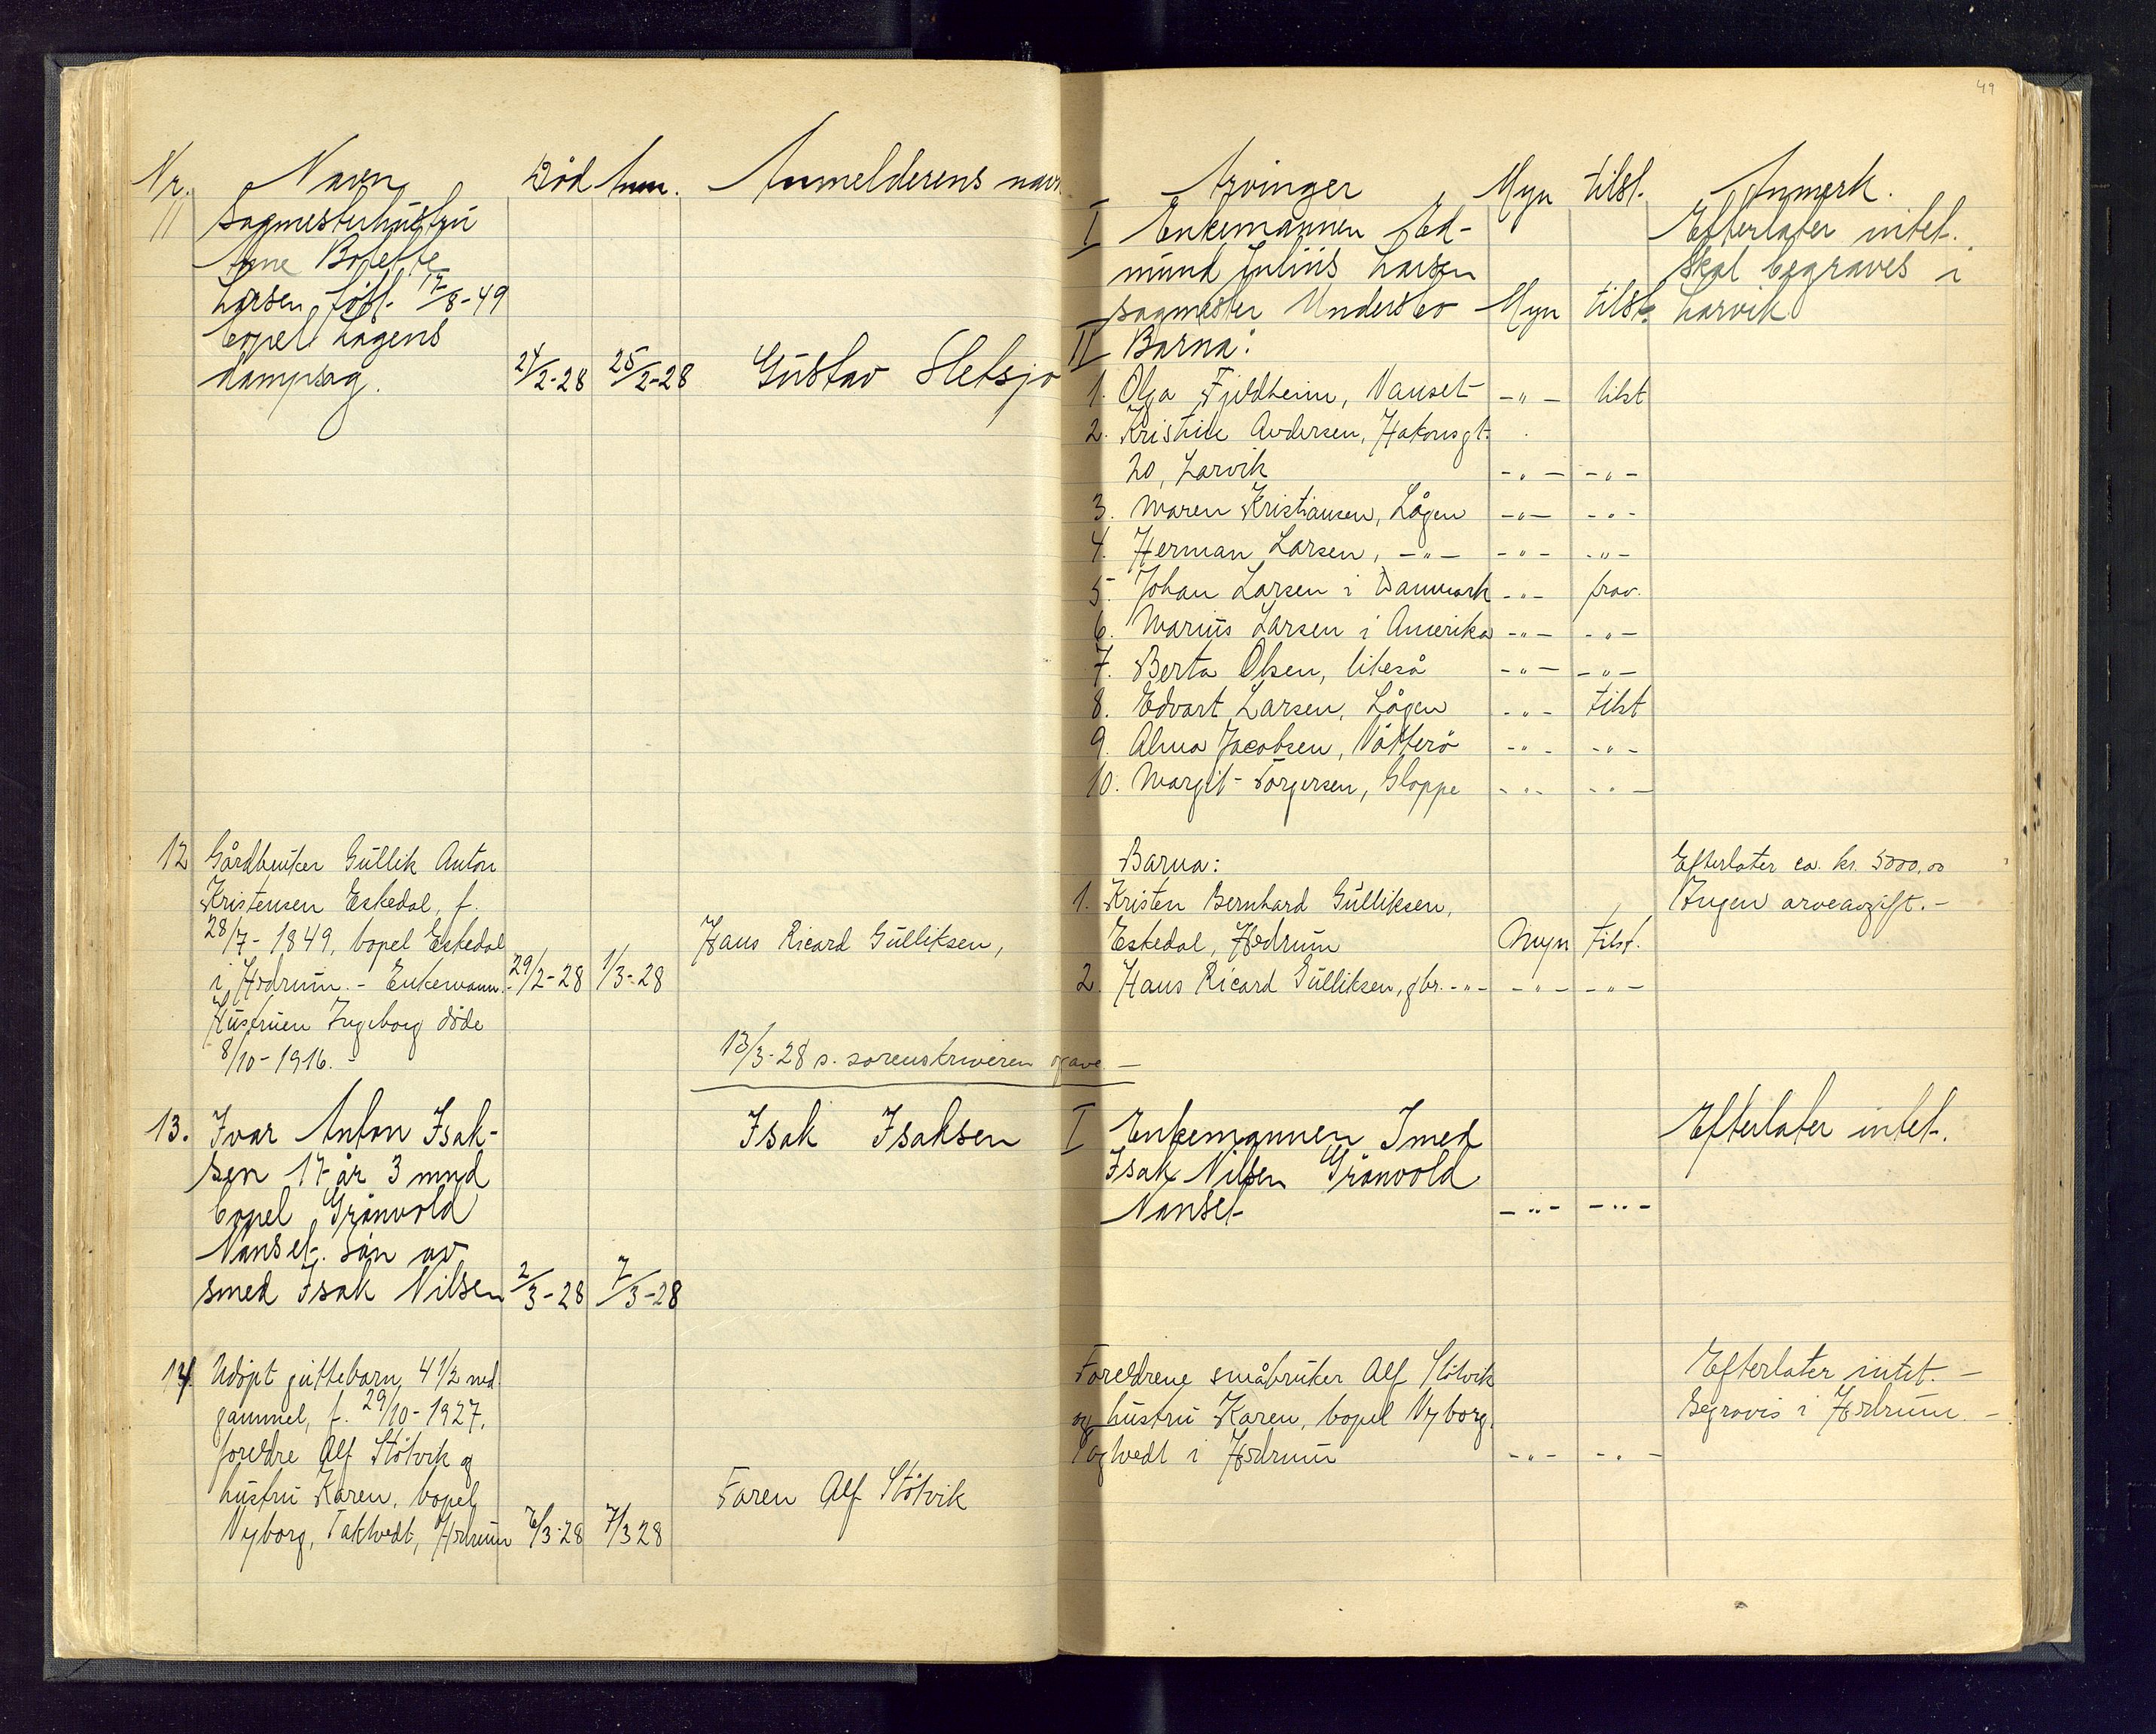 49
Nr. Navn Död Anm. Anmelderens navn
11 Sagmesterhustru
Ane Bolette
Larsen född 17/8-49
bopel Lågens
dampsag. 24/2-28 25/2-28 Gustav Sletsjø
12 Gårdbruker Gullik Anton
Kristensen Eskedal, f.
28/7-1849, bopel Eskedal
i Hedrum. - Enkemann. 29/2-28 1/3-28 Hans Ricard Gulliksen,
Hustruen Ingeborg döde
8/10-1916. -
13/3-28 s. sorenskriveren opgave. -
13. Ivar Anton Isak- Isak Isaksen
sen 17 år 3 mnd
bopel Grånvold
Nanset. sön av
smed Isak Nilsen 2/3-28 7/3-28
14. Udöpt guttebarn, 4 1/2 md.
gammel, f. 29/10-1927,
foreldre Alf Stölvik og
hustru Karen, bopel
Nyborg, Takhvedt, Hedrum 6/3-28 7/3 28 Faren Alf Stölvik
Arvinger Myn tilst. Anmerk.
I Enkemannen Ed- Efterlater intet.
mund Julius Larsen Skal begraves i
sagmester Understbo Myn tilst. Larvik
II Barna:
1. Olga Fjeldheim, Nanset -"- tilst
2. Kristine Andersen, Hakonsgt.
20, Larvik -"- -"-
3. Maren Kristiansen, Lågen -"- -"-
4. Herman Larsen, -"- -"- -"-
5. Johan Larsen i Danmark -"- frav.
6. Marius Larsen i Amerika -"- -"-
7. Berta Olsen, likeså -"- -"-
8. Edvart Larsen, Lågen -"- tilst
9. Alma Jacobsen, Nötterö -"- -"-
10. Margit Torgersen, Gloppe -"- -"-
Barna: Efterlater ca. kr. 5000,00
1. Kristen Bernhard Gulliksen, Ingen arveavgift. -
Eskedal, Hedrum Myn tilst.
2. Hans Ricard Gulliksen, gbr. -"- -"- -"-
I Enkemannen Smed Efterlater intet.
Isak Nilsen Grånvold
Nanset -"- -"-
Foreldrene småbruker Alf Stölvik Efterlater intet. -
og hustru Karen, bopel Nyborg, Begravis i Hedrum. -
i Hedrum -"- -"-